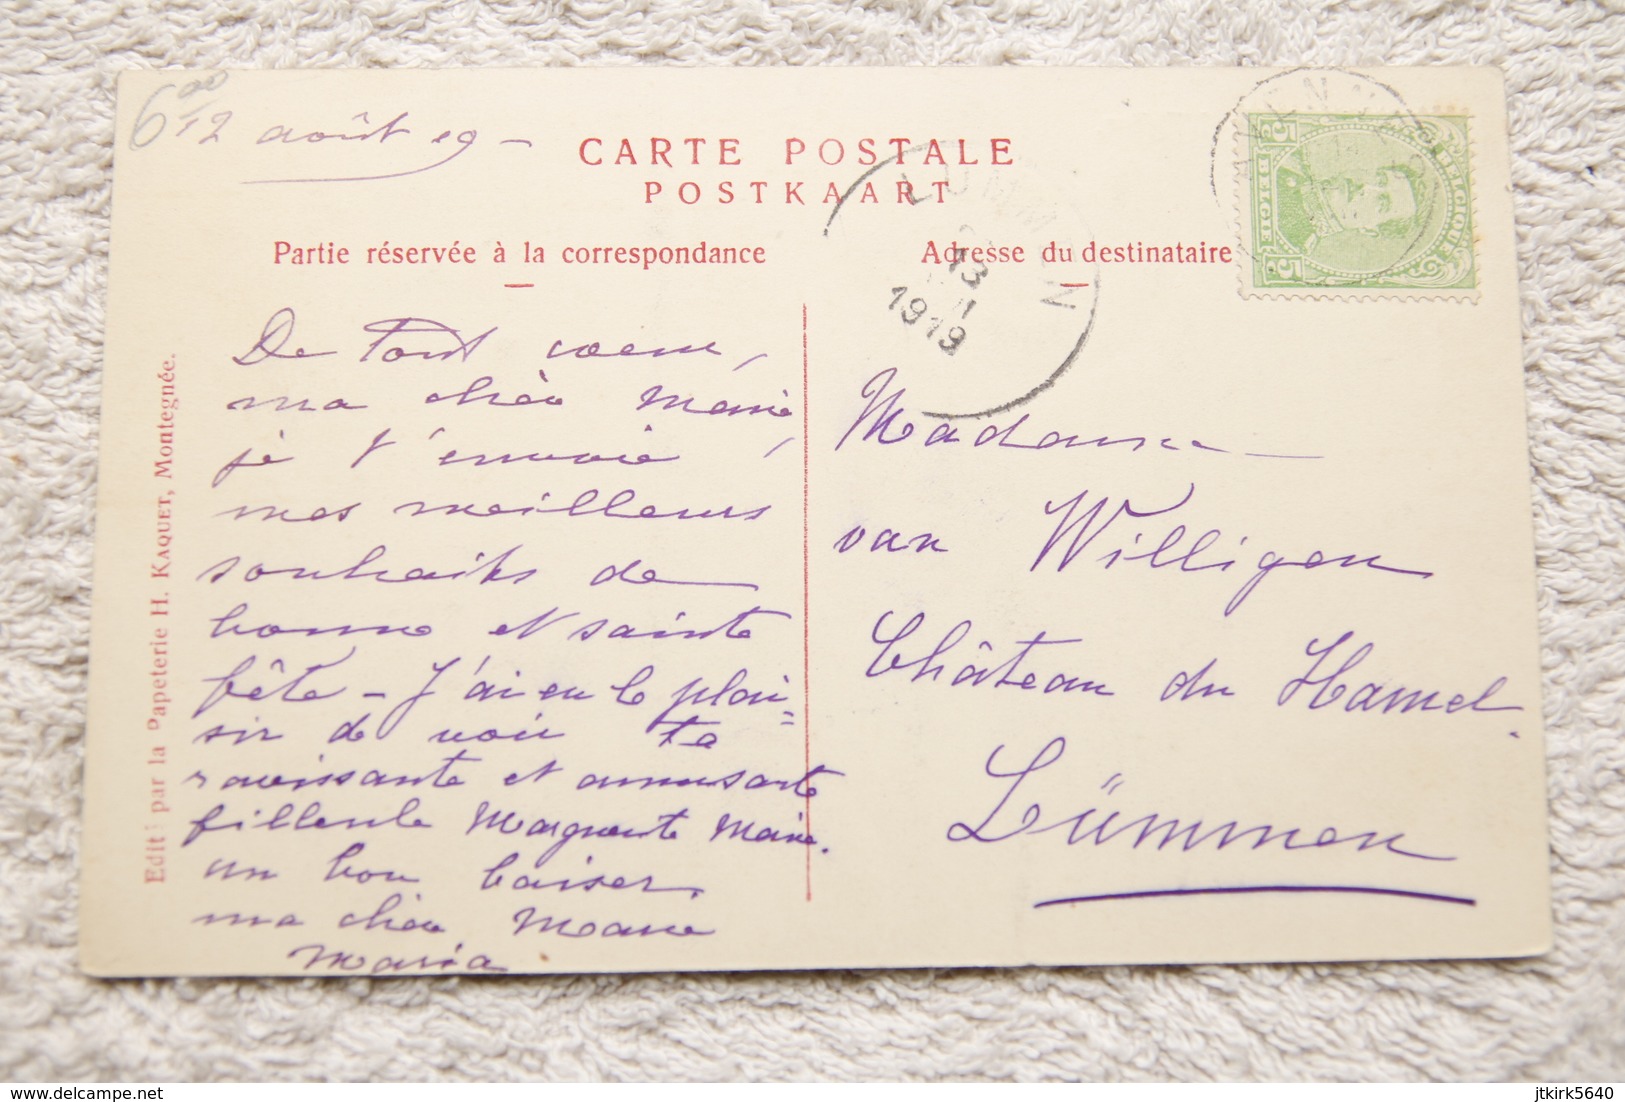 6,00
12 août 19 -
CARTE POSTALE
POSTKAART
Partie réservée à la correspondance
Adresse du destinataire
LUMMEN
13
1919
5c BELGIË
BELGIQUE 5c
De tout coeur,
ma chère Marie
je t'envoie,
mes meilleurs
souhaits de
bonne et sainte
fête - J'ai eu le plai=
sir de voir ta
ravissante et amusante
filleule Marguerite Marie.
un bon baiser.
ma chère Marie
Maria
Madame
van Willigen
Château du Hamel.
Lümmen
Edité par la Papeterie H. KAQUET, Montegnée.
delcampe.net
jtkirk5640